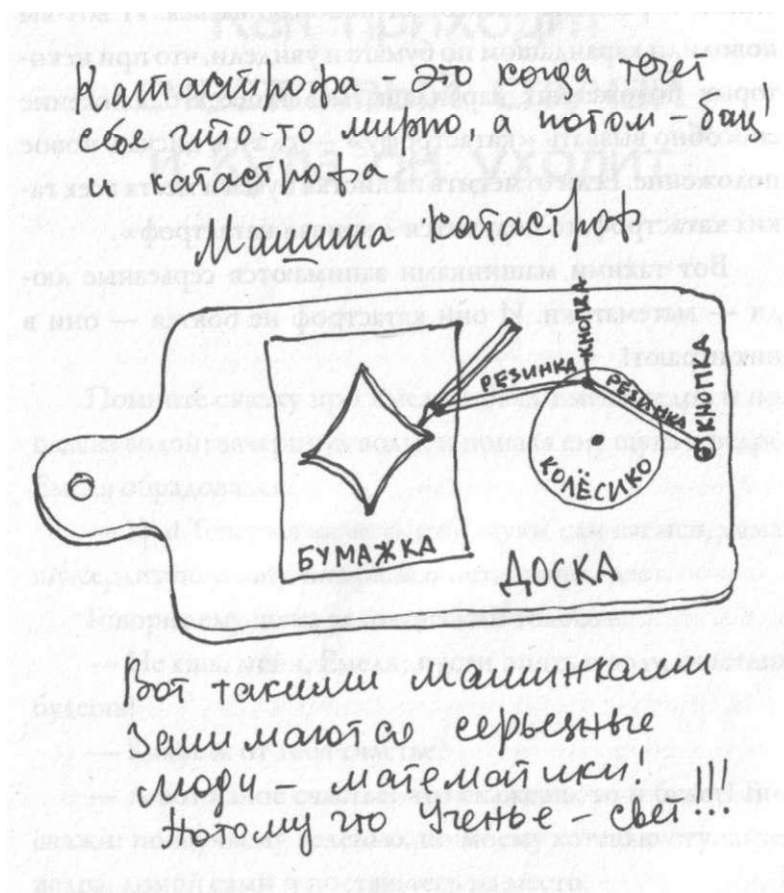 Катастрофа – это когда течет
себе что-то мирно, а потом – бац!
и катастрофа
Машина катастроф
КНОПКА
РЕЗИНКА
РЕЗИНКА
КНОПКА
КОЛЁСИКО
БУМАЖКА
ДОСКА
Вот такими машинками
занимаются серьезные
люди – математики!
Потому что Ученье – свет!!!